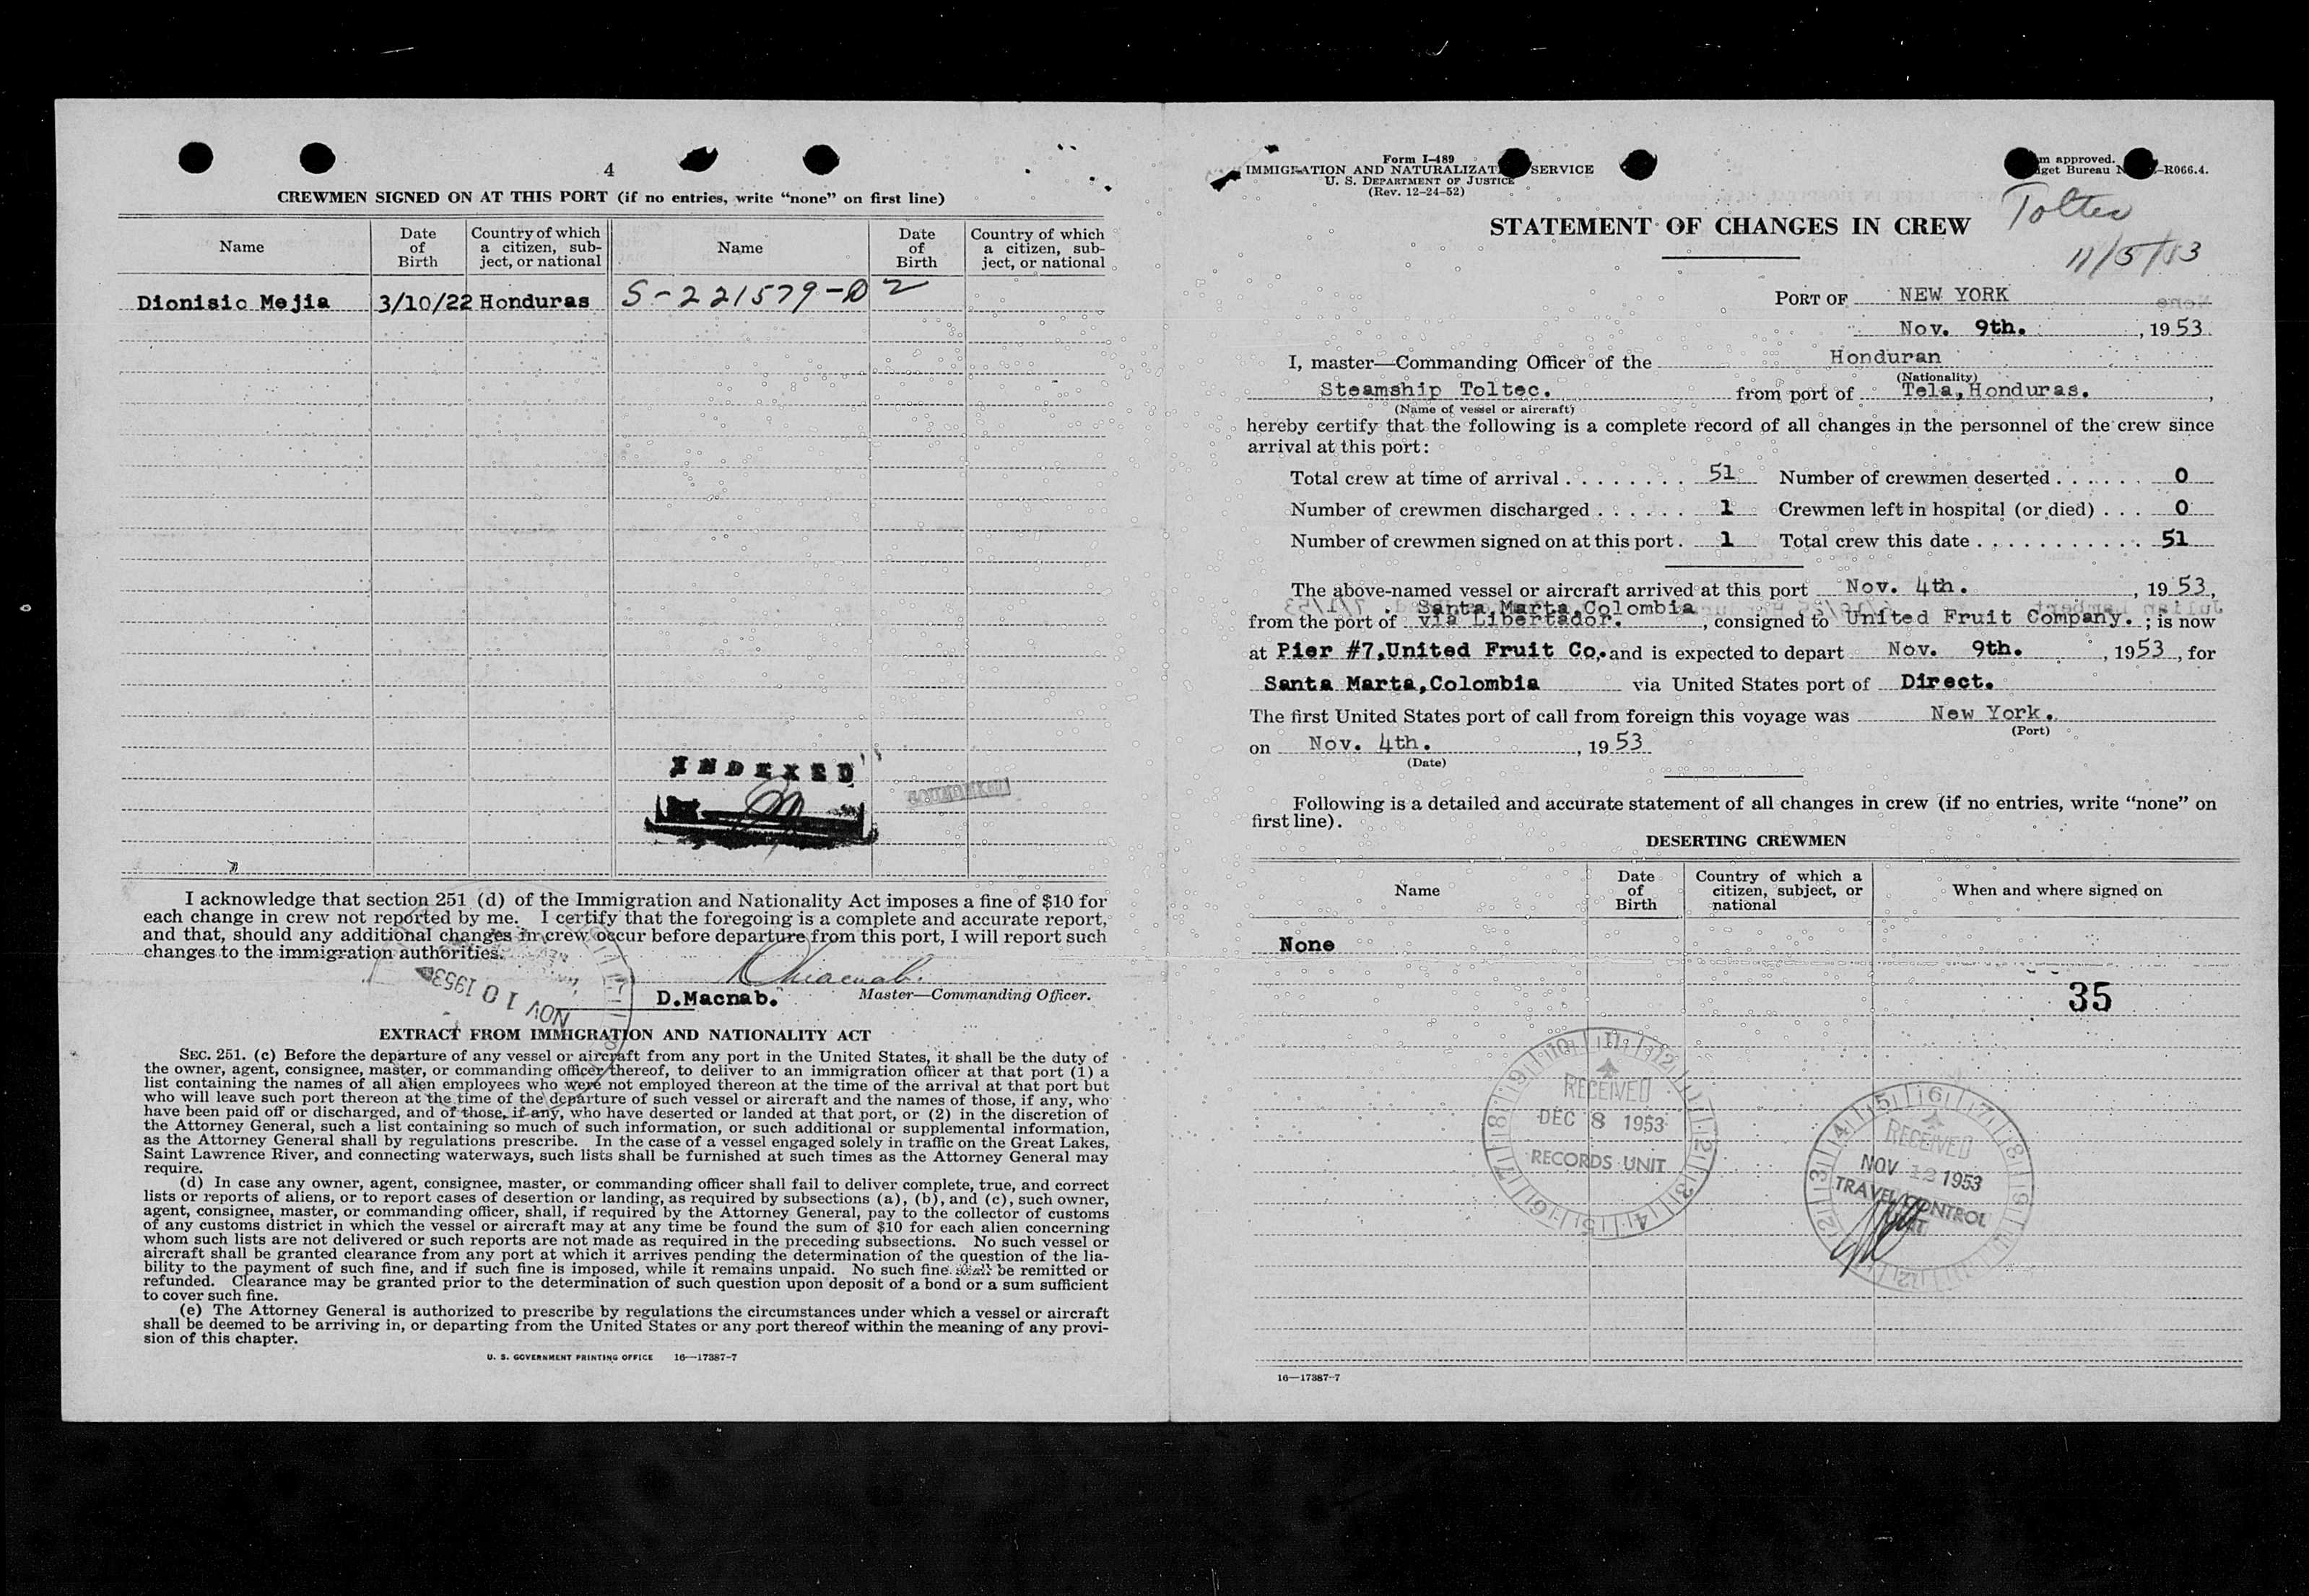 4
CREWMEN SIGNED ON AT THIS PORT (if no entries, write “none” on first line)
Name
Date of Birth
Country of which a citizen, subject, or national
Name
Date of Birth
Country of which a citizen, subject, or national
Dionisio Mejia 3/10/22 Honduras S-221579-D2
INDEXED
I acknowledge that section 251 (d) of the Immigration and Nationality Act imposes a fine of $10 for
each change in crew not reported by me. I certify that the foregoing is a complete and accurate report,
and that, should any additional changes in crew occur before departure from this port, I will report such
changes to the immigration authorities.
NOV 10 1953
D.Macnab. Master—Commanding Officer.
EXTRACT FROM IMMIGRATION AND NATIONALITY ACT
SEC. 251. (c) Before the departure of any vessel or aircraft from any port in the United States, it shall be the duty of
the owner, agent, consignee, master, or commanding officer thereof, to deliver to an immigration officer at that port (1) a
list containing the names of all alien employees who were not employed thereon at the time of the arrival at that port but
who will leave such port thereon at the time of the departure of such vessel or aircraft and the names of those, if any, who
have been paid off or discharged, and of those, if any, who have deserted or landed at that port, or (2) in the discretion of
the Attorney General, such a list containing so much of such information, or such additional or supplemental information,
as the Attorney General shall by regulations prescribe. In the case of a vessel engaged solely in traffic on the Great Lakes,
Saint Lawrence River, and connecting waterways, such lists shall be furnished at such times as the Attorney General may
require.
(d) In case any owner, agent, consignee, master, or commanding officer shall fail to deliver complete, true, and correct
lists or reports of aliens, or to report cases of desertion or landing, as required by subsections (a), (b), and (c), such owner,
agent, consignee, master, or commanding officer, shall, if required by the Attorney General, pay to the collector of customs
of any customs district in which the vessel or aircraft may at any time be found the sum of $10 for each alien concerning
whom such lists are not delivered or such reports are not made as required in the preceding subsections. No such vessel or
aircraft shall be granted clearance from any port at which it arrives pending the determination of the question of the lia-
bility to the payment of such fine, and if such fine is imposed, while it remains unpaid. No such fine shall be remitted or
refunded. Clearance may be granted prior to the determination of such question upon deposit of a bond or a sum sufficient
to cover such fine.
(e) The Attorney General is authorized to prescribe by regulations the circumstances under which a vessel or aircraft
shall be deemed to be arriving in, or departing from the United States or any port thereof within the meaning of any provi-
sion of this chapter.
U. S. GOVERNMENT PRINTING OFFICE 16—17387-7
Form I-489
IMMIGRATION AND NATURALIZAT SERVICE
U. S. DEPARTMENT OF JUSTICE
(Rev. 12-24-52)
m approved.
get Bureau N -R066.4.
Toltec
11/5/53
STATEMENT OF CHANGES IN CREW
PORT OF NEW YORK
Nov. 9th., 1953
I, master—Commanding Officer of the Honduran
(Nationality)
Steamship Toltec. from port of Tela, Honduras.,
(Name of vessel or aircraft)
hereby certify that the following is a complete record of all changes in the personnel of the crew since
arrival at this port:
Total crew at time of arrival . . . . . . . . 51 Number of crewmen deserted . . . . . . 0
Number of crewmen discharged . . . . . . 1 Crewmen left in hospital (or died) . . . 0
Number of crewmen signed on at this port . 1 Total crew this date . . . . . . . . . . . . 51
The above-named vessel or aircraft arrived at this port Nov. 4th., 1953,
Santa Marta, Colombia
from the port of via Libertador., consigned to United Fruit Company. ; is now
at Pier #7, United Fruit Co. and is expected to depart Nov. 9th., 1953, for
Santa Marta, Colombia via United States port of Direct.
The first United States port of call from foreign this voyage was New York.
(Port)
on Nov. 4th., 1953
(Date)
Following is a detailed and accurate statement of all changes in crew (if no entries, write “none” on
first line).
DESERTING CREWMEN
Name
Date of Birth
Country of which a citizen, subject, or national
When and where signed on
None
35
RECEIVED
DEC 8 1953
RECORDS UNIT
RECEIVED
NOV 12 1953
TRAVEL CONTROL
16—17387-7